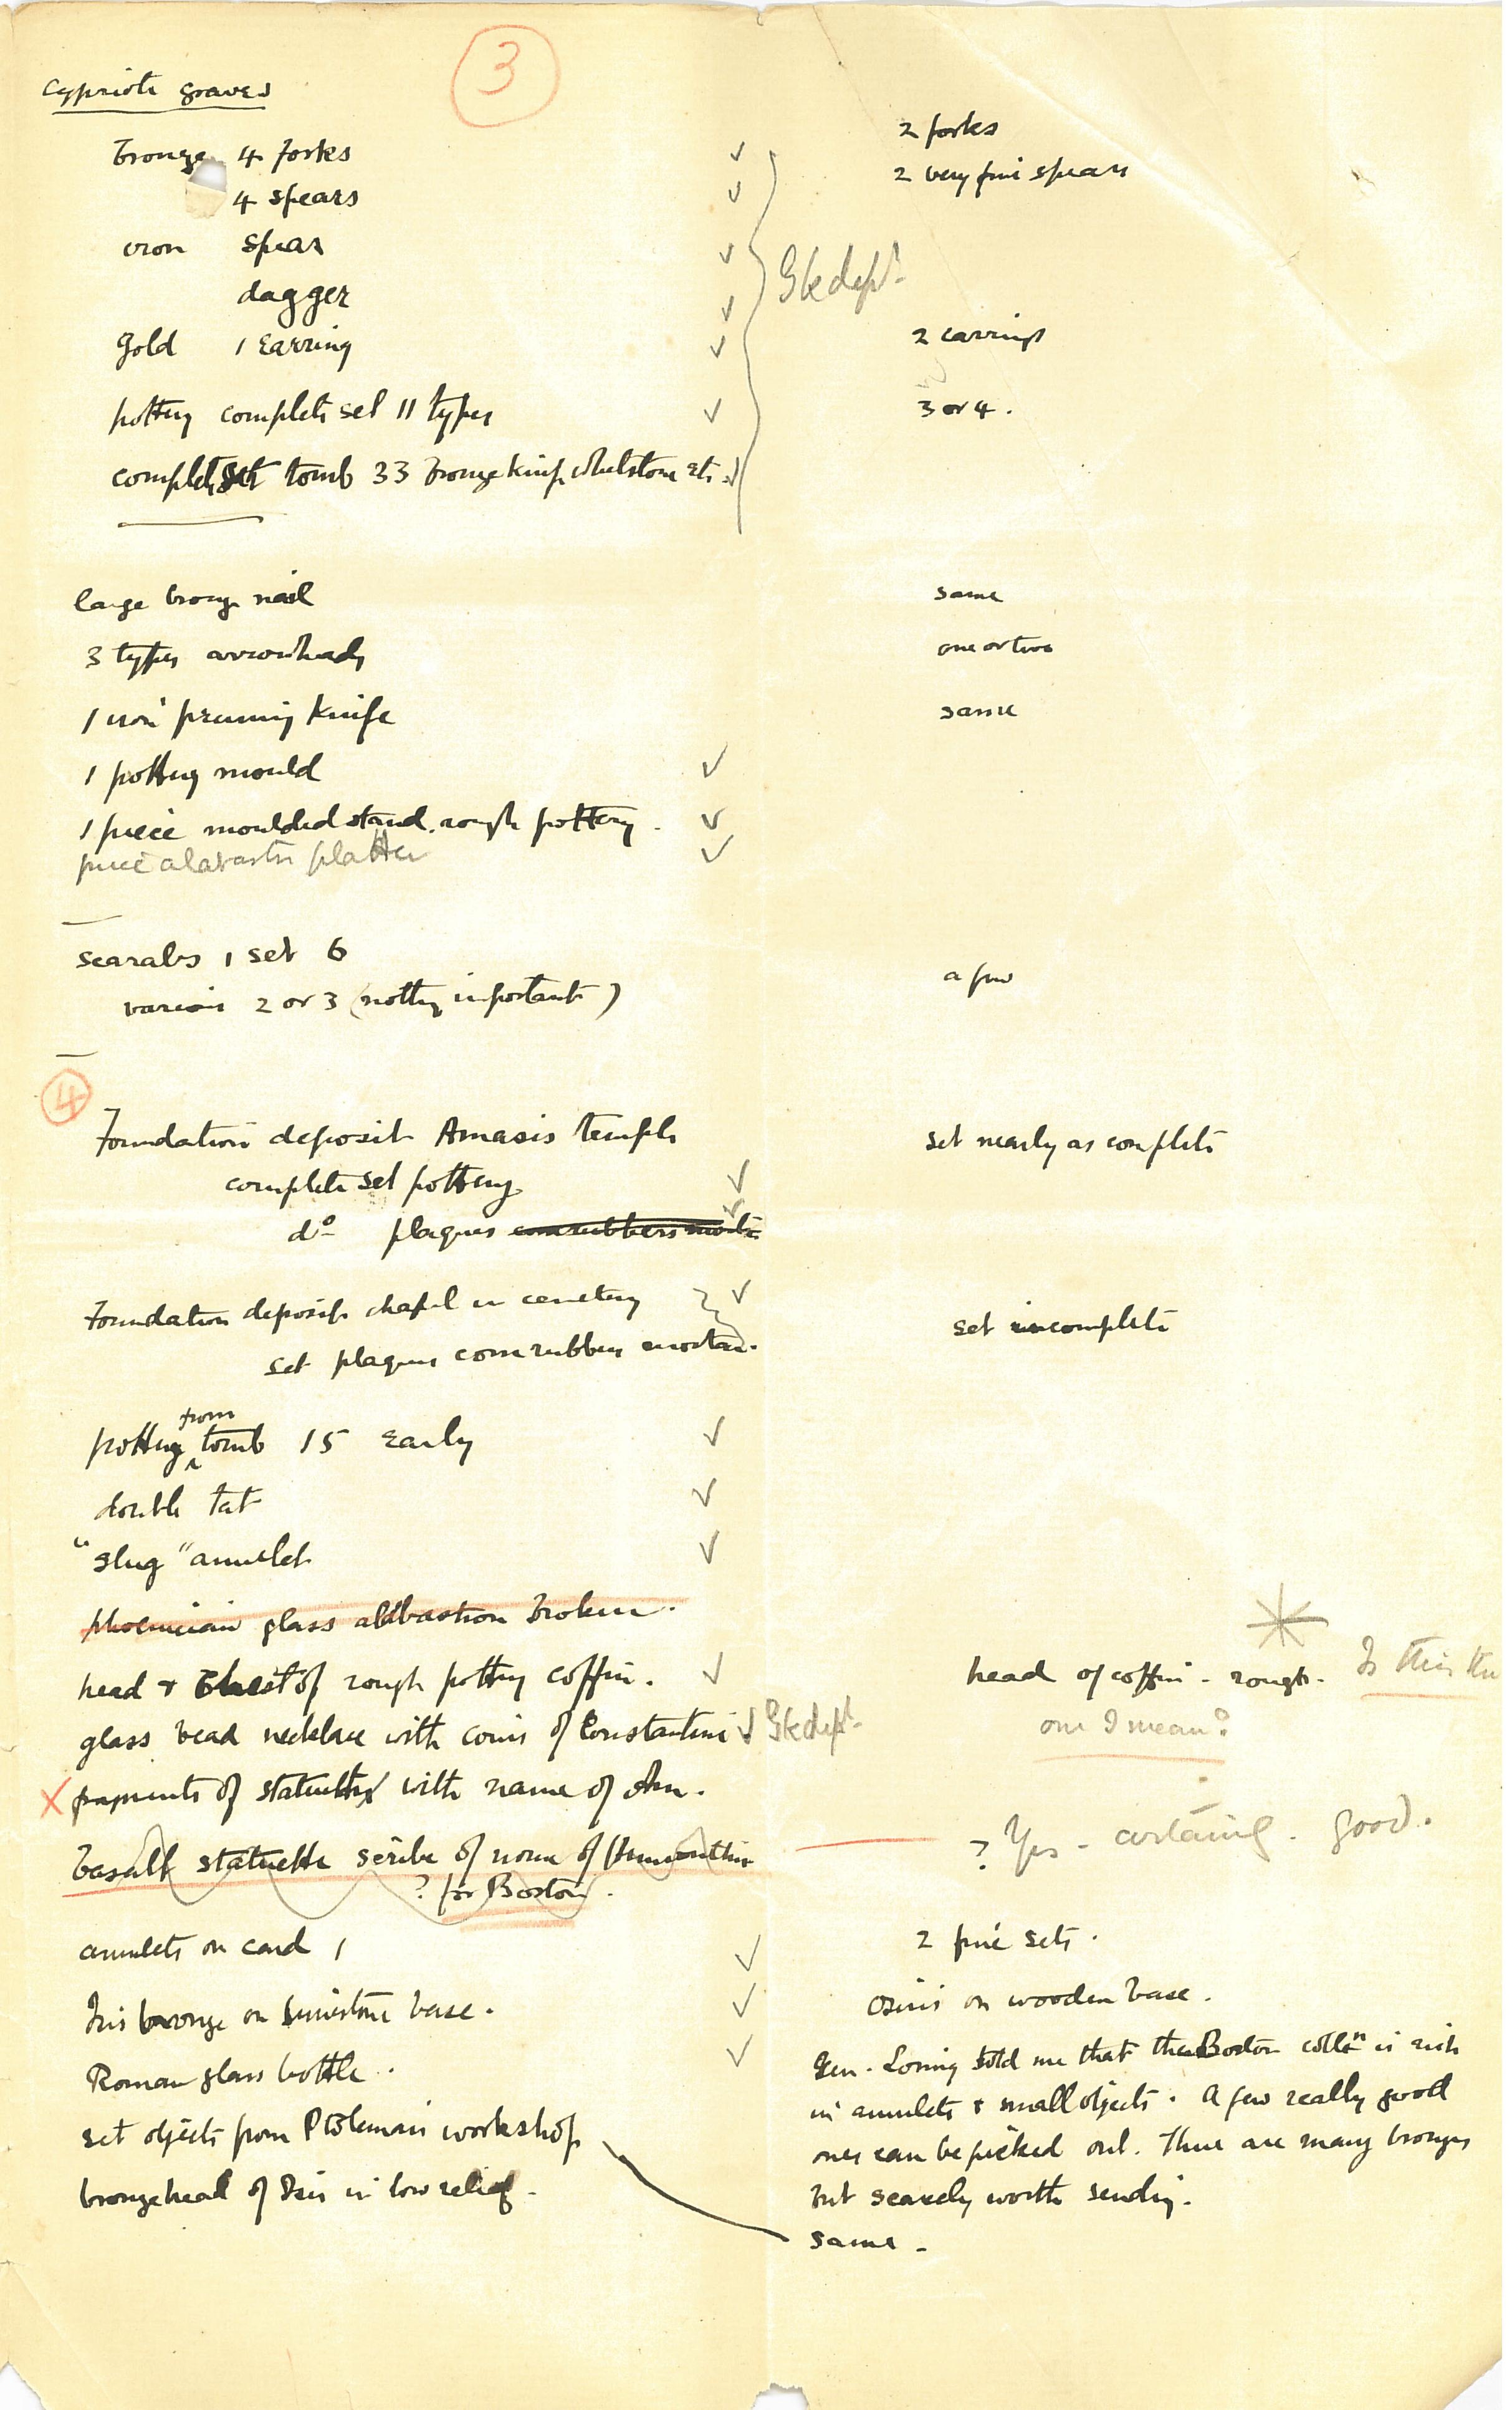 3
Cypriote graves
bronze 4 forks ✓ 2 forks
4 spears ✓ 2 very fine spears
iron spear ✓
dagger ✓ Gk dept.
Gold 1 Earring ✓ 2 earrings
pottery complete set 11 types ✓ 3 or 4.
complete set tomb 33 bronze knife whetstone etc. ✓
large bronze nail same
3 types arrowheads one or two
1 iron pruning knife same
1 pottery mould ✓
1 piece moulded stand. rough pottery. ✓
piece alabaster platter ✓
scarabs 1 set 6
various 2 or 3 (nothing important) a few
4
Foundation deposit Amasis temple set nearly as complete
complete set pottery ✓
do plaques cornrubbers mortar ✓
Foundation deposit chapel in cemetery ✓
set plaques cornrubbers mortar. set incomplete
pottery from tomb 15 Early ✓
double tat ✓
"slug" amulet ✓
phoenician glass alabastron broken.
head & chest of rough pottery coffin. ✓ head of coffin - rough. Is this the
one I mean?
glass bead necklace with coins of Constantine ✓ Gk dept.
X fragments of statuette with name of
basalt statuette scribe of nome of ? Yes - certainly. good.
? for Boston.
amulets on card 1 ✓ 2 fine sets.
Isis bronze on limestone base. ✓ Osiris on wooden base.
Roman glass bottle. ✓
set objects from Ptolemaic workshop
bronze head of Isis in low relief.
Gen. Loring told me that the Boston colln is rich
in amulets & small objects. A few really good
ones can be picked out. There are many bronzes
but scarcely worth sending.
same.